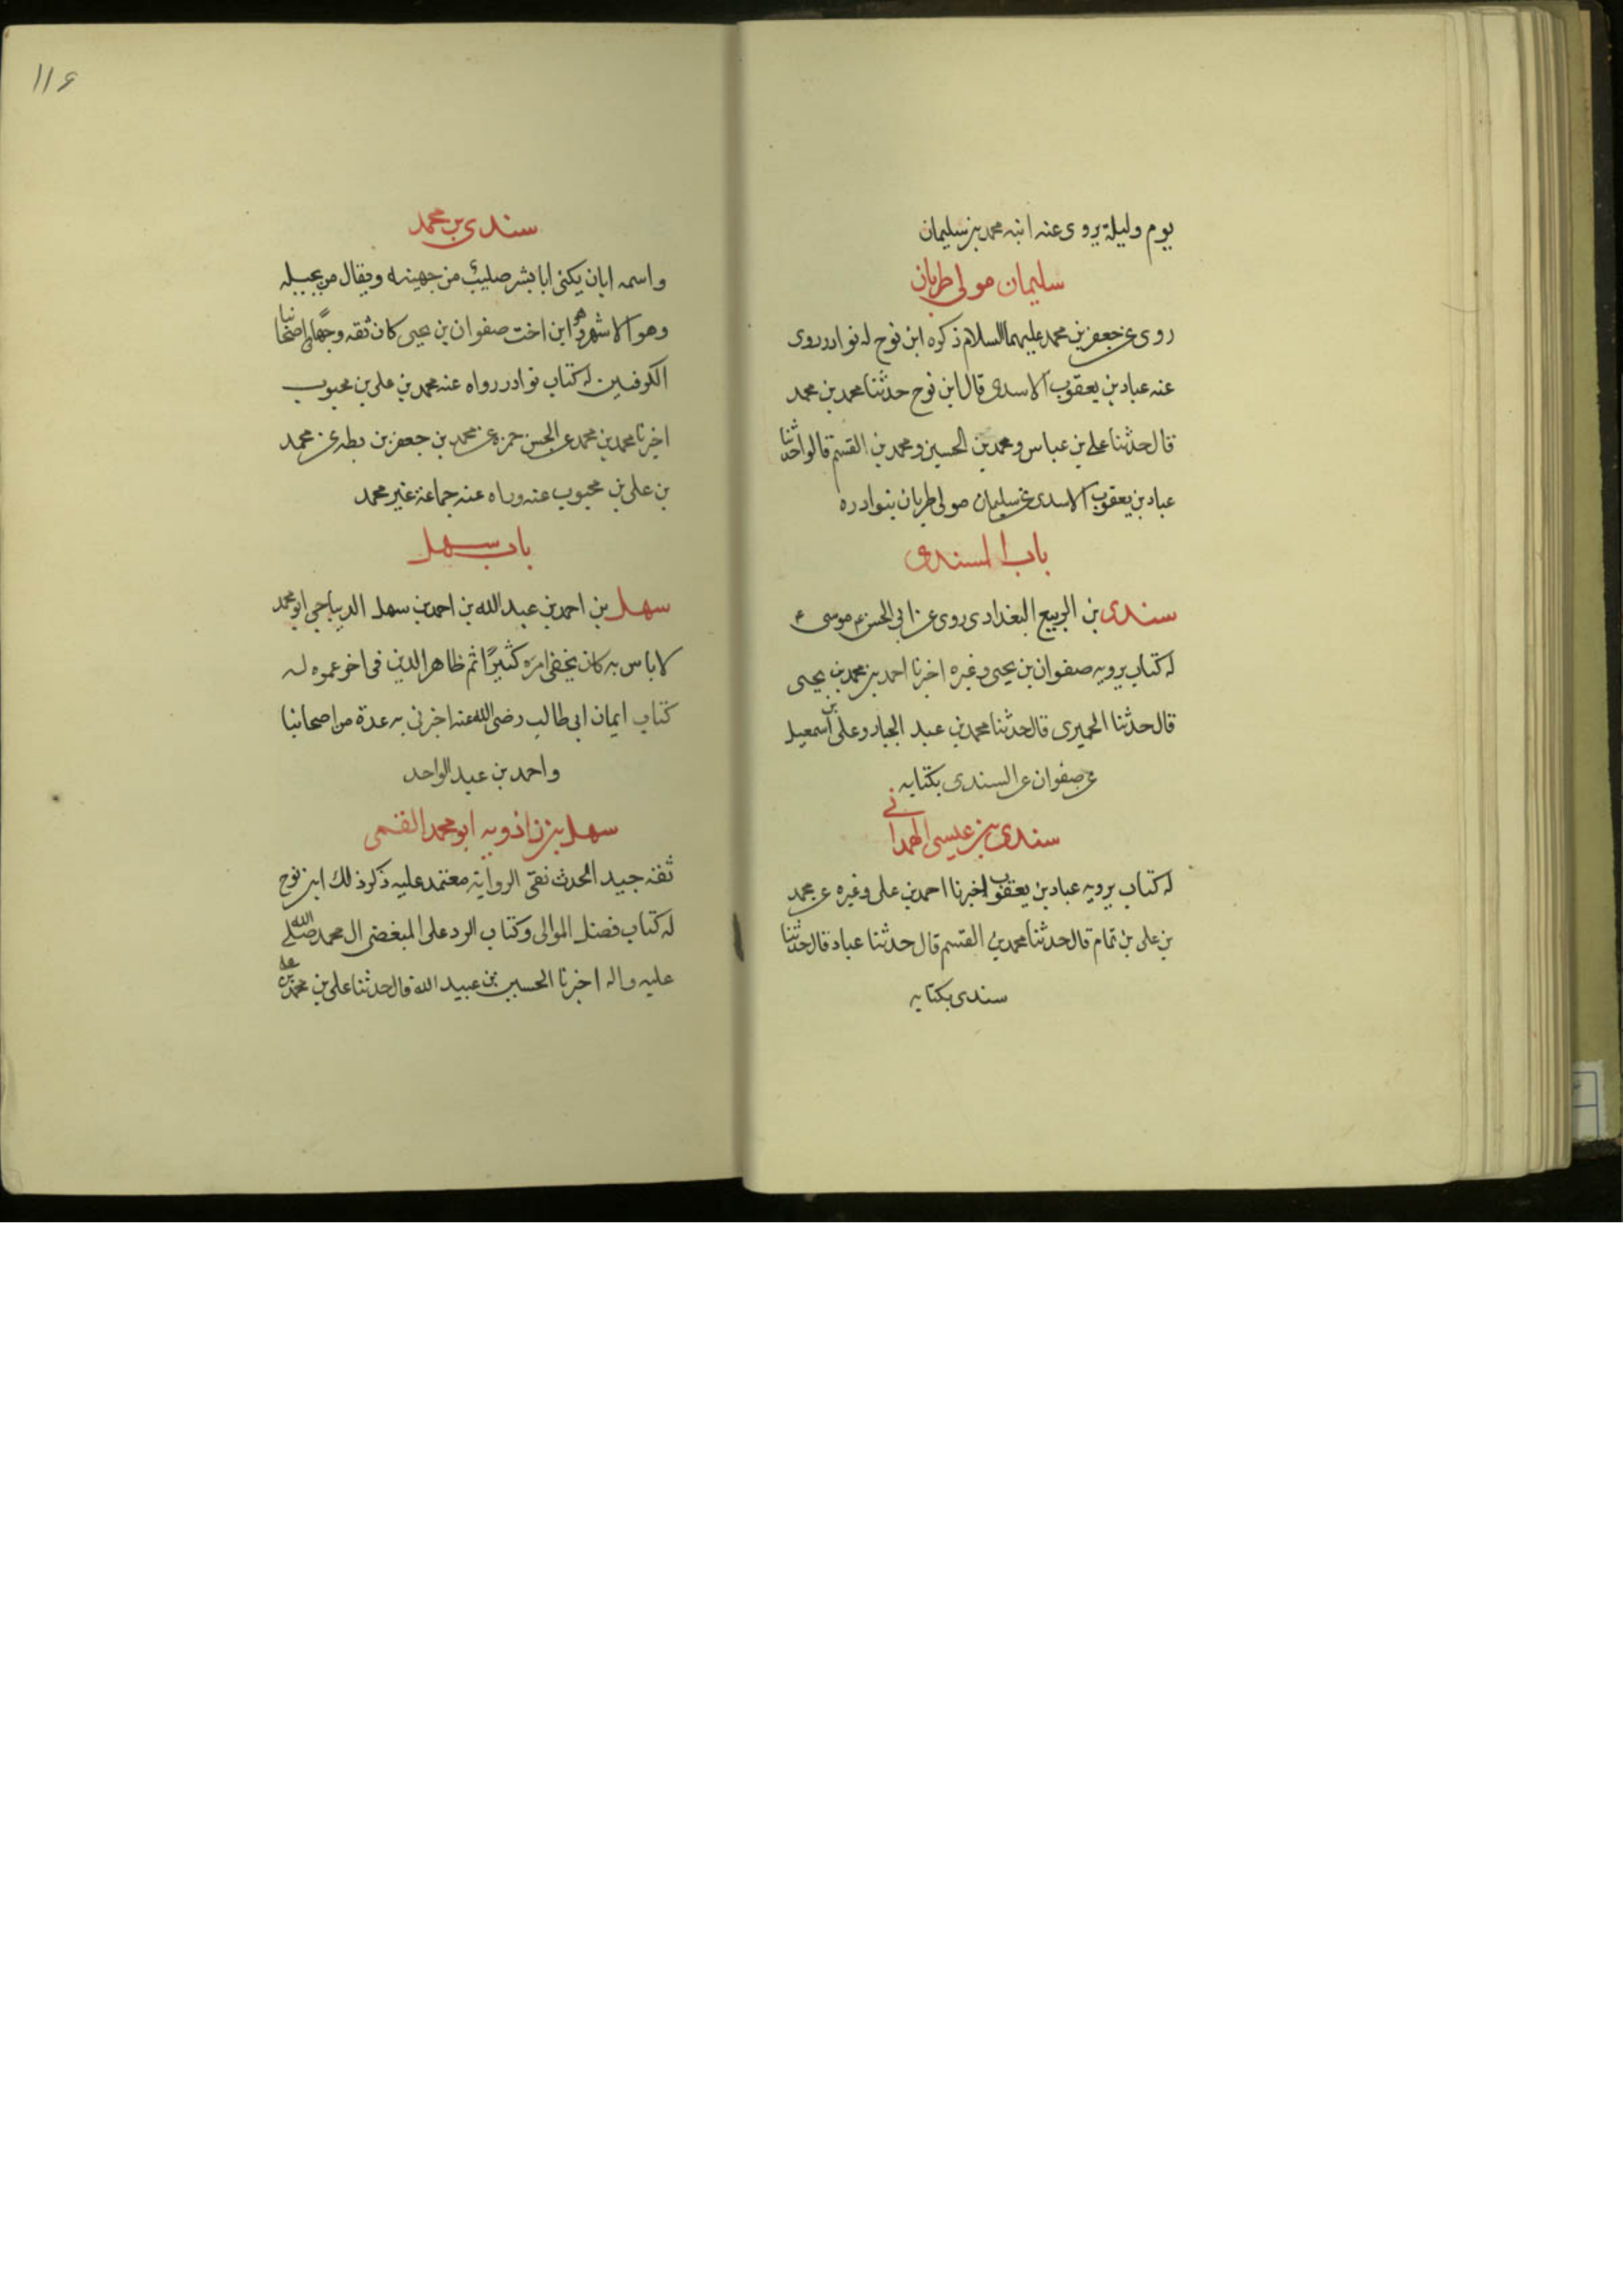 يوم وليلة يروى عنه ابنه محمد بن سليمان
سليمان مولى طربان
روى عن جعفر بن محمد عليهما السلام ذكره ابن نوح له نوادر روى
عنه عباد بن يعقوب الاسدى قال ابن نوح حدثنا محمد بن محمد
قال حدثنا على بن عباس ومحمد بن الحسين ومحمد بن القسم قالوا حدثنا
عباد بن يعقوب الاسدى عن سليمان مولى طربان بنوادره
باب السندى
سندى بن الربيع البغدادى روى عن ابى الحسن موسى ع
له كتاب يرويه صفوان بن يحيى وغيره اخبرنا احمد بن محمد بن يحيى
قال حدثنا الحميرى قال حدثنا محمد بن عبد الجبار وعلى بن اسمعيل
عن صفوان عن السندى بكتابه
سندى بن عيسى الهمدانى
له كتاب يرويه عباد بن يعقوب اخبرنا احمد بن على وغيره عن محمد
بن على بن تمام قال حدثنا محمد بن القسم قال حدثنا عباد قال حدثنا
سندى بكتابه
١١٦
سندى بن محمد
واسمه ابان يكنى ابا بشر صليب من جهينه ويقال من بجيله
وهو الاشهر وهو ابن اخت صفوان بن يحيى كان ثقه وجها فى اصحابنا
الكوفيين له كتاب نوادر رواه عنه محمد بن على بن محبوب
اخبرنا محمد بن محمد عن الحسن حمزه عن محمد بن جعفر بن بطه عن محمد
بن على بن محبوب عنه ورواه عنه جماعة غير محمد
باب سهل
سهل بن احمد بن عبد الله بن احمد بن سهل الديباجى ابو محمد
لا باس به كان يخفى امره كثيرًا ثم ظاهر الدين فى اخر عمره له
كتاب ايمان ابى طالب رضى الله عنه اخبرنى به عدة من اصحابنا
واحمد بن عبد الواحد
سهل بن زاذويه ابو محمد القمى
ثقه جيد الحدث نقى الرواية معتمد عليه ذكر ذلك ابن نوح
له كتاب فضل الموالى وكتاب الرد على المبغضى ال محمد صلى الله
عليه واله اخبرنا الحسين بن عبيد الله قال حدثنا على بن محمد بن